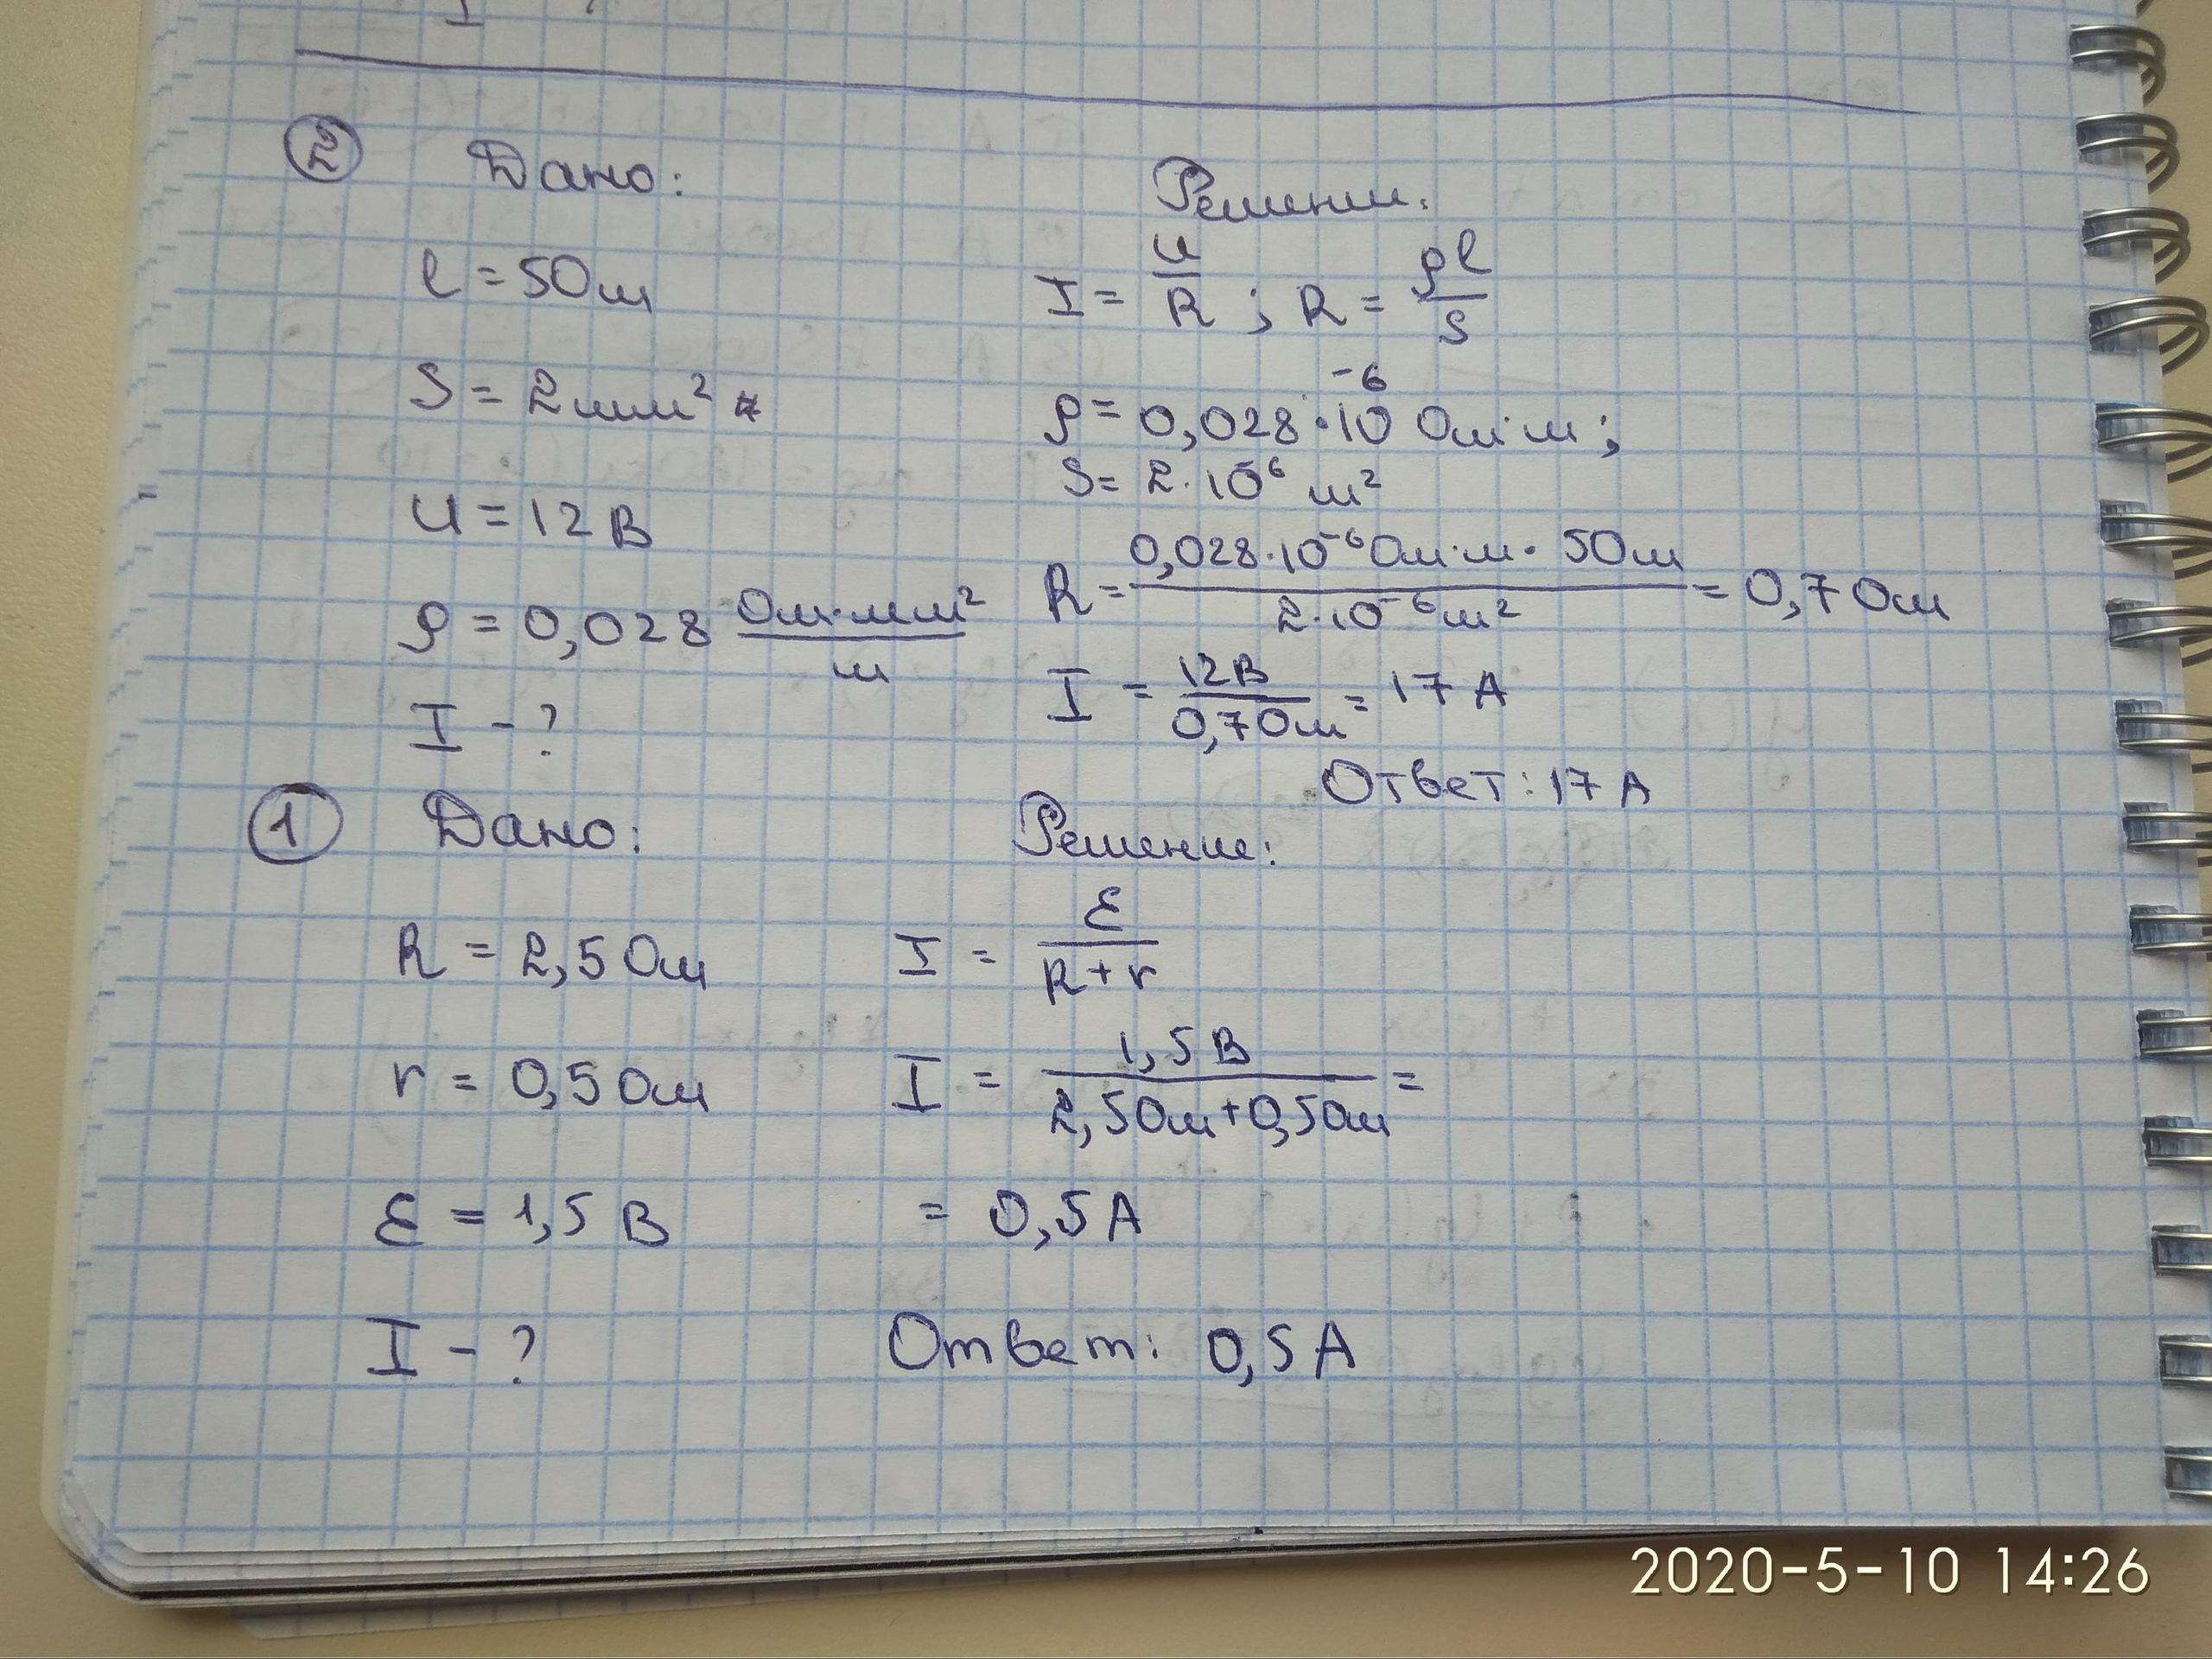 ② Дано:
l = 50м
S = 2мм²
U = 12 В
ρ = 0,028 Ом·мм²/м
I - ?
Решение:
I = U/R ; R = ρl/S
ρ = 0,028·10⁻⁶ Ом·м;
S = 2·10⁻⁶ м²
R = 0,028·10⁻⁶Ом·м · 50м / 2·10⁻⁶м² = 0,7 Ом
I = 12В / 0,7Ом = 17 А
Ответ: 17 А
① Дано:
R = 2,5 Ом
r = 0,5 Ом
ℰ = 1,5 В
I - ?
Решение:
I = ℰ / R+r
I = 1,5 В / 2,5Ом+0,5Ом =
= 0,5 А
Ответ: 0,5 А
2020-5-10 14:26